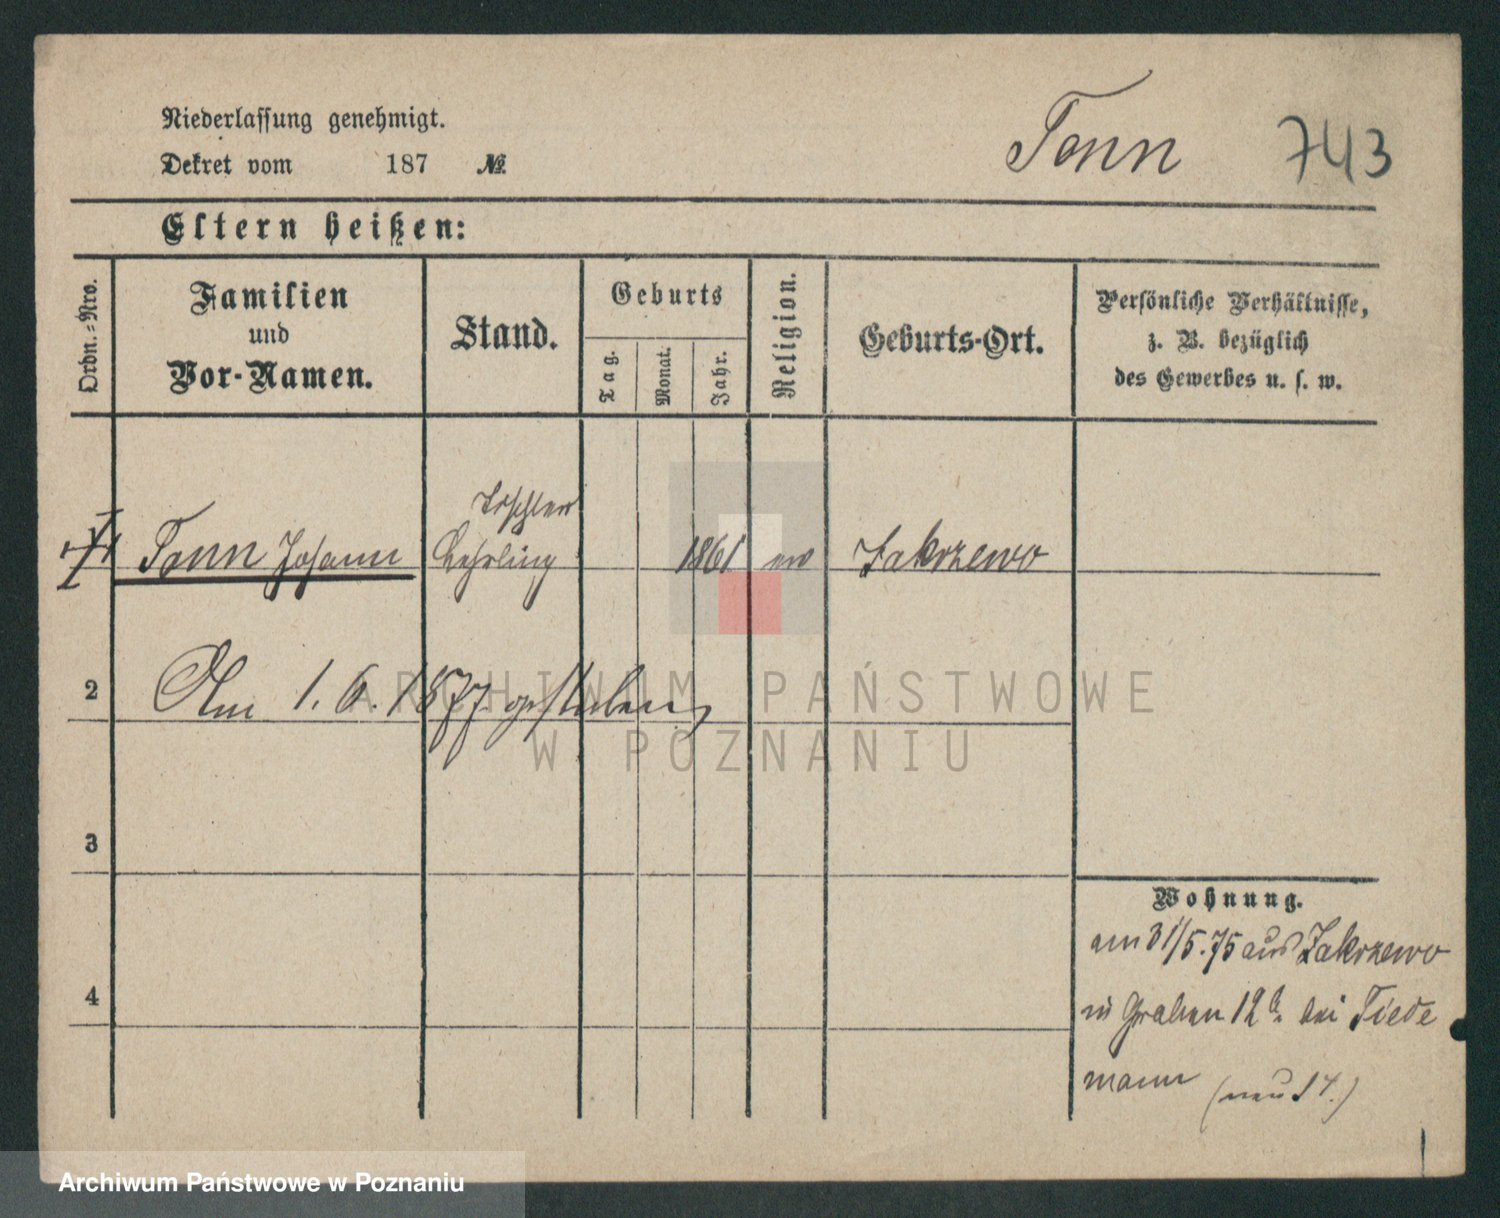 Niederlassung genehmigt.
Tonn 743
Dekret vom 187 №
Eltern heißen:
Ordn.-Nro.
Familien
und
Vor-Namen.
Stand.
Geburts
Tag.
Monat.
Jahr.
Religion.
Geburts-Ort.
Persönliche Verhältnisse,
z. B. bezüglich
des Gewerbes u. s. w.
Tischler
1 Tonn Johann Lehrling 1861 ev Zakrzewo
2 Am 1. 6. 1877 gestorben
3
Wohnung.
am 31/5.75 aus Zakrzewo
4
in Graben 12 bei Tiede
mann (neu 17.)
ARCHIWUM PAŃSTWOWE
W POZNANIU
Archiwum Państwowe w Poznaniu